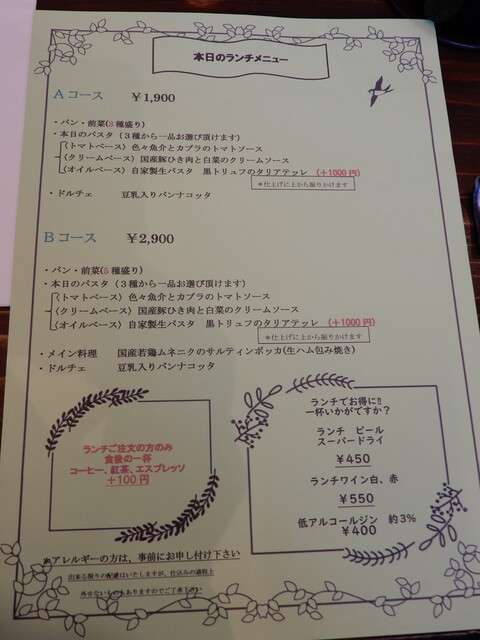 本日のランチメニュー
Aコース ￥1,900
・パン・前菜(3種盛り)
・本日のパスタ（3種から一品お選び頂けます）
〈トマトベース〉色々魚介とカブラのトマトソース
〈クリームベース〉国産豚ひき肉と白菜のクリームソース
〈オイルベース〉自家製生パスタ 黒トリュフのタリアテッレ（＋1000円）
＊仕上げに上から振りかけます
・ドルチェ 豆乳入りパンナコッタ
Bコース ￥2,900
・パン・前菜(5種盛り)
・本日のパスタ（3種から一品お選び頂けます）
〈トマトベース〉色々魚介とカブラのトマトソース
〈クリームベース〉国産豚ひき肉と白菜のクリームソース
〈オイルベース〉自家製生パスタ 黒トリュフのタリアテッレ（＋1000円）
＊仕上げに上から振りかけます
・メイン料理 国産若鶏ムネニクのサルティンボッカ(生ハム包み焼き)
・ドルチェ 豆乳入りパンナコッタ
ランチご注文の方のみ
食後の一杯
コーヒー、紅茶、エスプレッソ
＋100円
ランチでお得に!!
一杯いかがですか？
ランチ ビール
スーパードライ
￥450
ランチワイン白、赤
￥550
低アルコールジン 約3%
￥400
※アレルギーの方は、事前にお申し付け下さい
出来る限りの配慮はいたしますが、仕込みの過程上
外せないものもありますのでご了承下さい